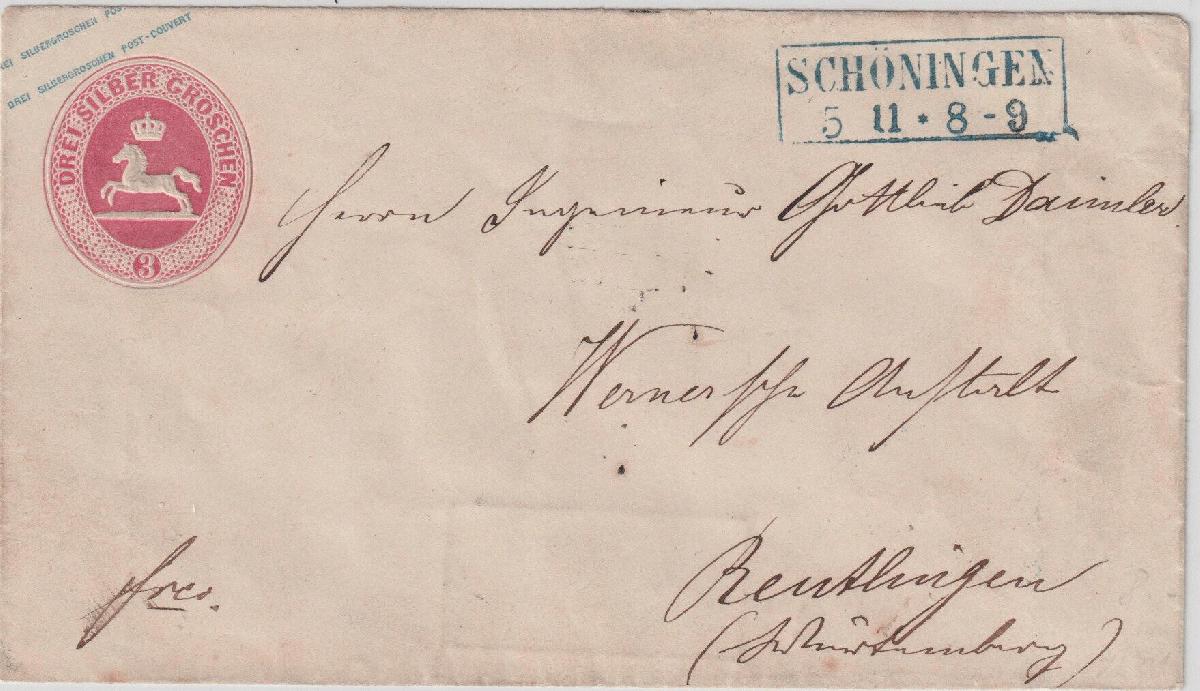 DREI SILBERGROSCHEN POST
DREI SILBERGROSCHEN POST-COUVERT
DREI SILBER GROSCHEN
3
SCHÖNINGEN
5 11 * 8 - 9
Herrn Ingenieur Gottlieb Daimler
Werner'sche Anstalt
Reutlingen
(Würtemberg)
frco.